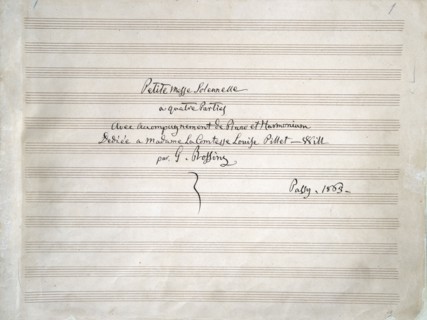 Petite Messe Solennelle
a quatre Parties
Avec accompagnement de Piano et Harmonium
Dediée a Madame La Comtesse Louise Pillet-Will
par G. Rossini
Passy. 1863.